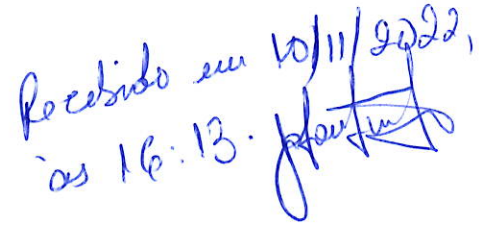 Recebido em 10/11/2022,
às 16:13.